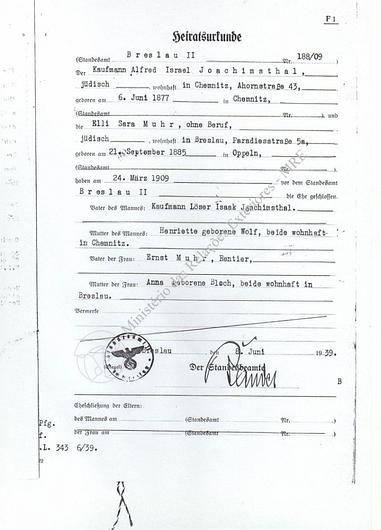 F 1
Heiratsurkunde
(Standesamt Breslau II Nr. 188/09
Der Kaufmann Alfred Israel Joachimsthal,
jüdisch, wohnhaft in Chemnitz, Ahornstraße 43,
geboren am 6. Juni 1877 in Chemnitz,
(Standesamt Nr. ), und
die Elli Sara Muhr, ohne Beruf,
jüdisch, wohnhaft in Breslau, Paradiesstraße 5a,
geboren am 21. September 1885 in Oppeln,
(Standesamt Nr. )
haben am 24. März 1909 vor dem Standesamt
Breslau II die Ehe geschlossen.
Vater des Mannes: Kaufmann Löser Isaak Joachimsthal.
Mutter des Mannes: Henriette geborene Wolf, beide wohnhaft
in Chemnitz.
Vater der Frau: Ernst Muhr, Rentier,
Mutter der Frau: Anna geborene Bloch, beide wohnhaft in
Breslau.
Vermerke
Breslau den 8. Juni 1939.
(Siegel)
Der Standesbeamte
B
Eheschließung der Eltern:
des Mannes am (Standesamt Nr. )
der Frau am (Standesamt Nr. )
Pfg.
f.
.L. 343 6/39.
Ministério das Relações Exteriores - MRE